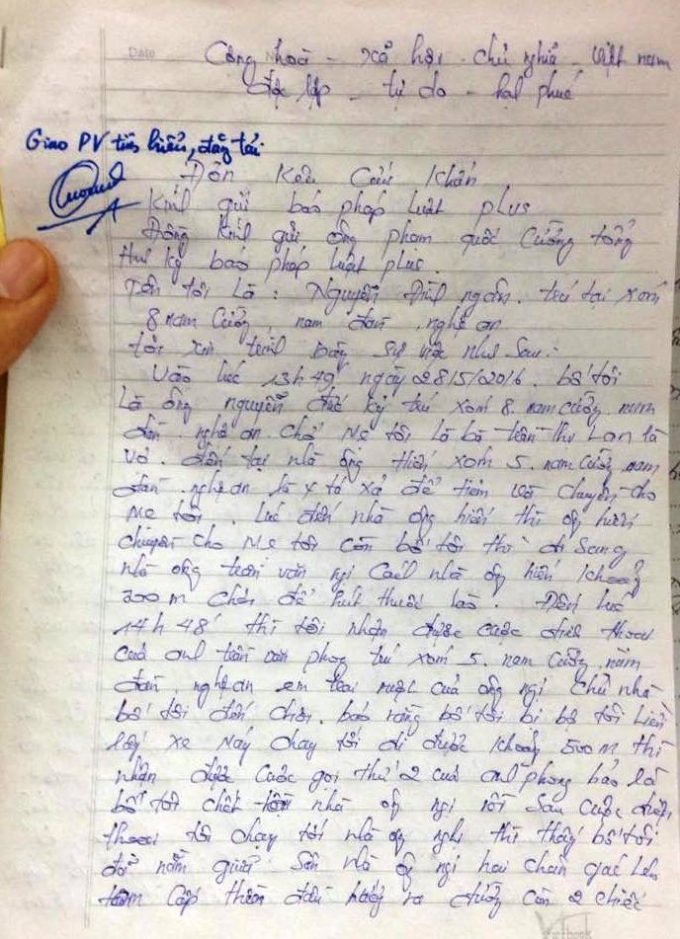 Date
Cộng hoà - xả hội - chủ nghĩa - việt nam
độc lập - tự do - hạh phúc
Giao PV tìm hiểu, đăng tải
Đơn Kêu Cứu khẩn
Kính gửi báo pháp luật plus
Đồng Kính gửi ông phạm quốc Cường tổng
thư ký báo pháp luật plus.
Tên tôi Là : Nguyễn Đình ngọc. trú tại xóm
8 nam Cường, nam đàn, nghệ an.
tôi xin trình bày sự việc như sau:
Vào lúc 13h 49' ngày 28/5/2016. bố tôi
Là ông nguyễn đức kỳ trú xóm 8. nam cường nam
đàn. nghệ an chở mẹ tôi là bà trần thị Lan là
vợ. đến tại nhà ông hiến xóm 5. nam cường nam
đàn. nghệ an là y tá xả để tiêm và chuyền cho
mẹ tôi. Lúc đến nhà ông hiến thì ông hiến
chuyền cho Mẹ tôi còn bố tôi thì đi sang
nhà ông trần văn ngi cách nhà ông hiến khoảng
300 m chơi để hút thuốc lào. Đến lúc
14h 48' thì tôi nhận được cuộc điện thoại
của anh trần văn phong trú xóm 5. nam cường. nam
đàn. nghệ an em trai ruột của ông ngi chủ nhà
bố tôi đến chơi. báo rằng bố tôi bị tôi liền
lấy xe máy chạy tới đi được khoảng 500 m thì
nhận được cuộc gọi thứ 2 của anh phong báo là
bố tôi chết nhà ông ngi rồi sau cuộc điện
thoại tôi chạy tới nhà ông nghị thì thấy bố tôi
đả nằm giữa sân nhà ông ngi hai chân gác lên
cấp thềm đầu hướng ra đường còn 2 chiếc